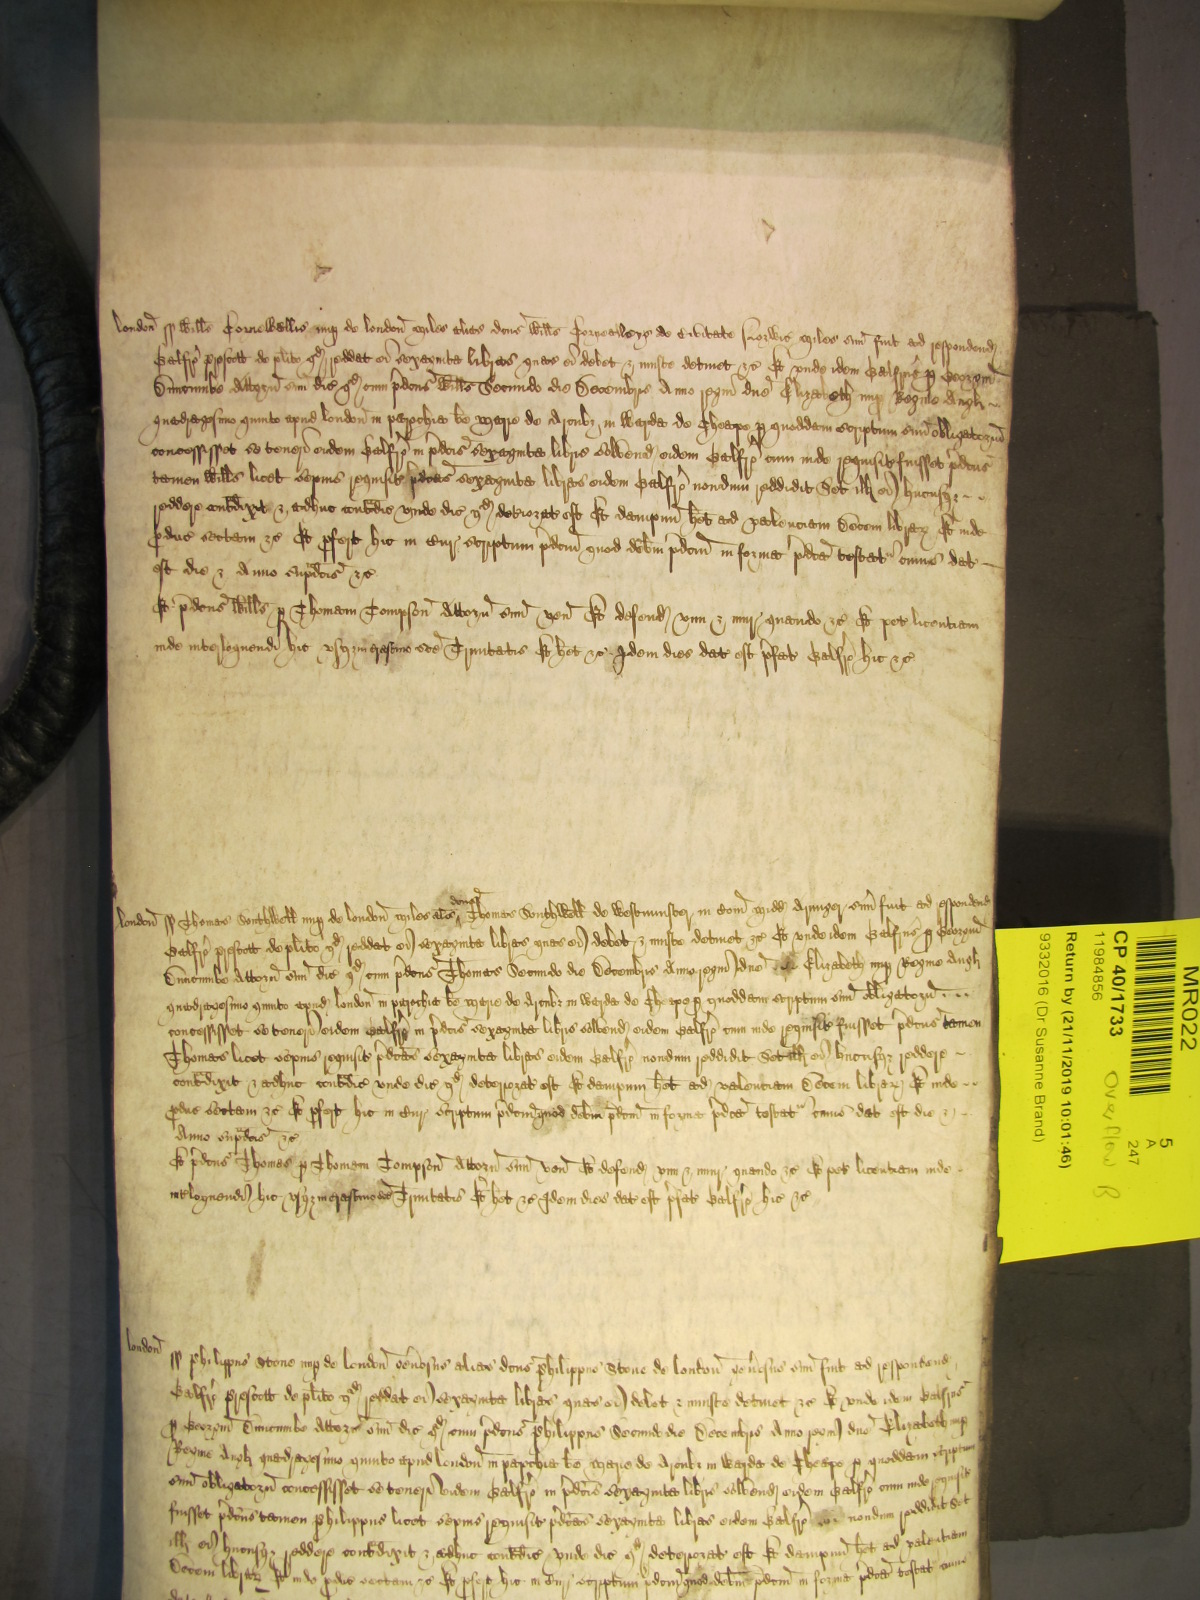 london ss Willus Cornewallis nup de london miles alias dcus Willus Cornewalleys de Civitate miles sum fuit ad respondend
Galfro prescott de plito qd reddat ei sexaginta libras quas ei debet & iniuste detinet &c Et unde idem Galfrus p Georgium
Dimcumbe Attorn suu dic qd cum pdcus Willus Secundo die Decembris Anno regni dne Elizabeth nup Regine Angl
quadragesimo quinto apud london in parochia be marie de Arcubz in Warda de Cheape p quoddam scriptum suu obligatoriu
concessisset se teneri eidem Galfro in pdcis sexaginta libris solvend eidem Galfro cum inde requisit fuisset pdcus
tamen Willus licet sepius requisit pdcas sexaginta libras eidem Galfro nondum reddidit Set ill ei hucusqz
reddere contdixit & adhuc contdic unde dic qd deteriorat est Et dampnu het ad valenciam Decem librar Et inde
produc sectam &c Et pfert hic in Cur scriptum pdcm quod debm pdcm in forma pdca testat cuius dat
est die & Anno supdcis &c
Et pdcus Willus p Thomam Tompson Attorn suu ven Et defend vim & iniur quando &c Et pet licentiam
inde interloquendi hic usqz in crastino sce Trinitatis Et het &c Idem dies dat est pfat Galfro hic &c
london ss Thomas Southwell nup de london miles als dcus Thomas Southwell de Westminster in Com Midd Armiger sum fuit ad respondend
Galfro prescott de plito qd reddat ei sexaginta libras quas ei debet & iniuste detinet &c Et unde idem Galfrus p Georgium
Dimcumbe Attorn suu dic qd cum pdcus Thomas Secundo die Decembris Anno regni dne Elizabeth nup Regine Angl
quadragesimo quinto apud london in parochia be marie de Arcubz in Warda de Cheape p quoddam scriptum suu obligatoriu
concessisset se teneri eidem Galfro in pdcis sexaginta libris solvend eidem Galfro cum inde requisit fuisset pdcus tamen
Thomas licet sepius requisit pdcas sexaginta libras eidem Galfro nondum reddidit Set ill ei hucusqz reddere
contdixit & adhuc contdic unde dic qd deteriorat est Et dampnu het ad valenciam Decem librar Et inde
produc sectam &c Et pfert hic in Cur scriptum pdcm quod debm pdcm in forma pdca testat cuius dat est die &
Anno supdcis &c
Et pdcus Thomas p Thomam Tompson Attorn suu ven Et defend vim & iniur quando &c Et pet licentiam inde
intloquendi hic usqz in crastino sce Trinitatis Et het &c Idem dies dat est pfat Galfro hic &c
london ss Philippus Stone nup de london generosus alias dcus Philippus Stone de london generosus sum fuit ad respondend
Galfro prescott de plito qd reddat ei sexaginta libras quas ei debet & iniuste detinet &c Et unde idem Galfrus
p Georgium Dimcumbe Attorn suu dic qd cum pdcus Philippus Secundo die Decembris Anno regni dne Elizabeth nup
Regine Angl quadragesimo quinto apud london in parochia be marie de Arcubz in Warda de Cheape p quoddam scriptum
suu obligatoriu concessisset se teneri eidem Galfro in pdcis sexaginta libris solvend eidem Galfro cum inde requisit
fuisset pdcus tamen Philippus licet sepius requisit pdcas sexaginta libras eidem Galfro nondum reddidit Set
ill ei hucusqz reddere contdixit & adhuc contdic unde dic qd deteriorat est Et dampnu het ad valentiam
Decem librar Et inde produc sectam &c Et pfert hic in Cur scriptum pdcm quod debm pdcm in forma pdca testat cuius
MR022
5
A
247
CP 40/1733 Overflow B
11984856
Return by (21/11/2019 10:01:46)
9332016 (Dr Susanne Brand)